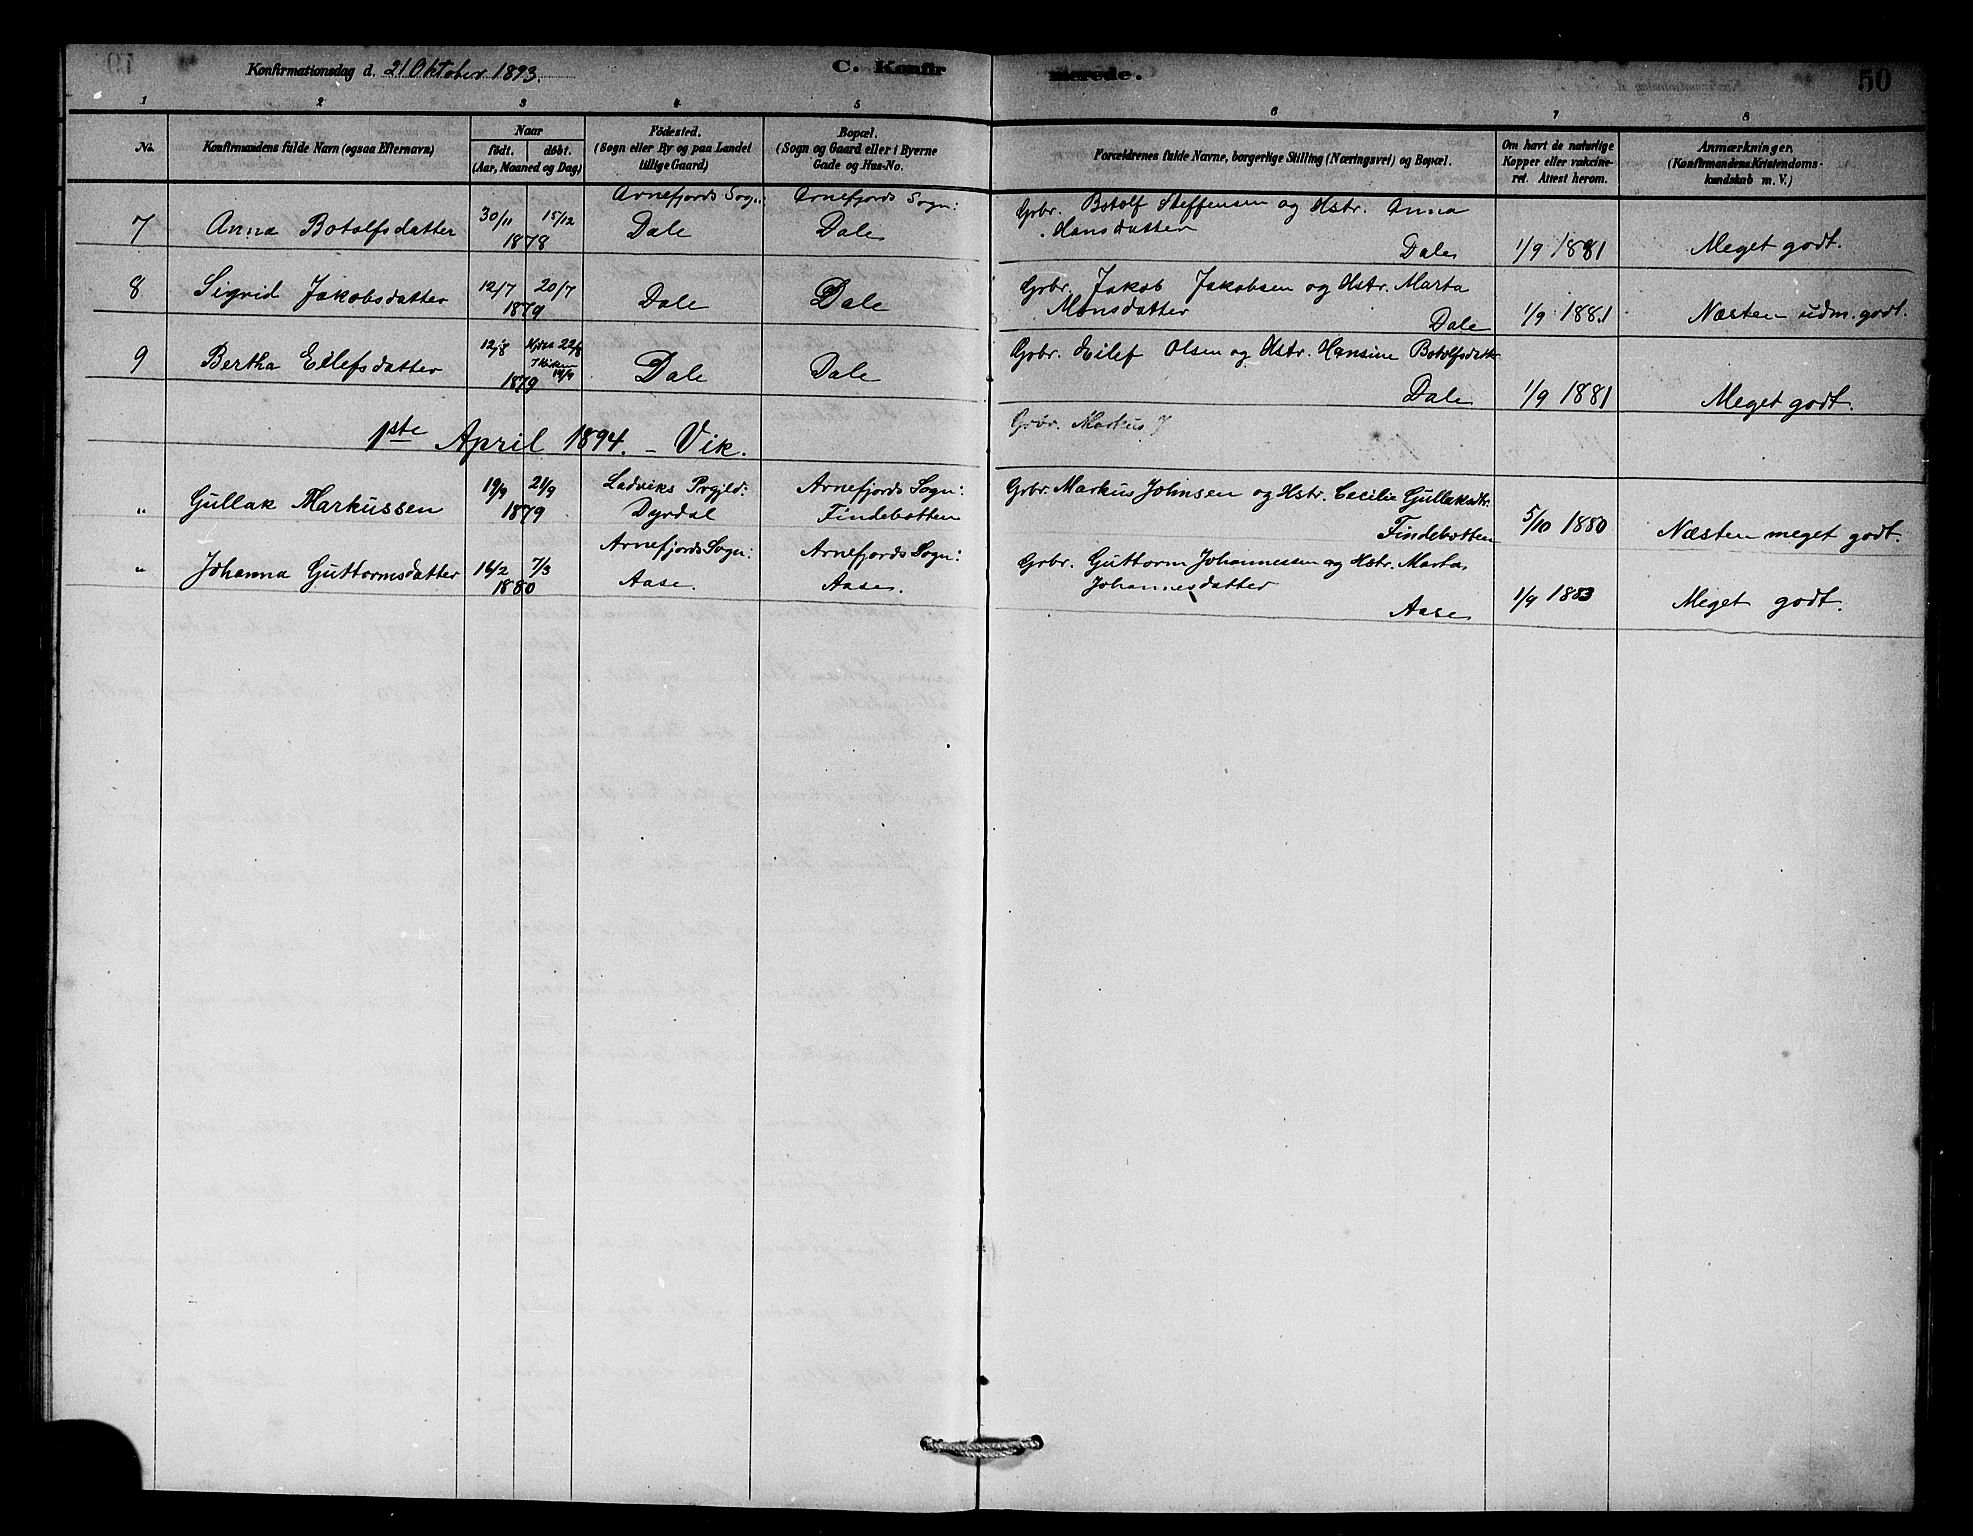 Konfirmationsdag d. 21 Oktober 1893. C. Konfirmerede. 50
1 2 3 4 5 6 7 8
No. Konfirmandens fulde Navn (ogsaa Efternavn). Naar födt. döbt. (Aar, Maaned og Dag.) Födested. (Sogn eller By og paa Landet tillige Gaard) Bopæl. (Sogn og Gaard eller i Byerne Gade og Hus-No. Forældrenes fulde Navne, borgerlige Stilling (Næringsvei) og Bopæl. Om havt de naturlige Kopper eller vaccineret. Attest herom. Anmærkninger. (Konfirmandens Kristendomskundskab m. V.)
Arnefjords Sogn: Arnefjords Sogn: Grbr. Botolf Steffensen og Hstr. Anna
7 Anna Botolfsdatter 30/11 15/12 1878 Dale Dale Hansdatter Dale 1/9 1881 Meget godt.
8 Sigrid Jakobsdatter 12/7 20/7 1879 Dale Dale Grbr. Jakob Jakobsen og Hstr. Marta
Monsdatter Dale 1/9 1881 Næsten udm. godt.
9 Bertha Eilefsdatter 12/8 Hjem 22/8 I Kirken 14/9 1879 Dale Dale Grbr. Eilef Olsen og Hstr. Hansine Botolfsdattr
Dale 1/9 1881 Meget godt.
1ste April 1894. - Vik. Grbr. Markus J
" Gullak Markussen 19/9 21/9 1879 Ladviks Prgjld: Dyrdal Arnefjords Sogn: Findebotten Grbr. Markus Johnsen og Hstr. Cecilie Gullaksdtr.
Findebotten 5/10 1880 Næsten meget godt.
" Johanna Guttormsdatter 14/2 7/3 1880 Arnefjords Sogn: Aase. Arnefjords Sogn: Aase. Grbr. Guttorm Johannessen og Hstr. Marta
Johannesdatter Aase 1/9 1883 Meget godt.